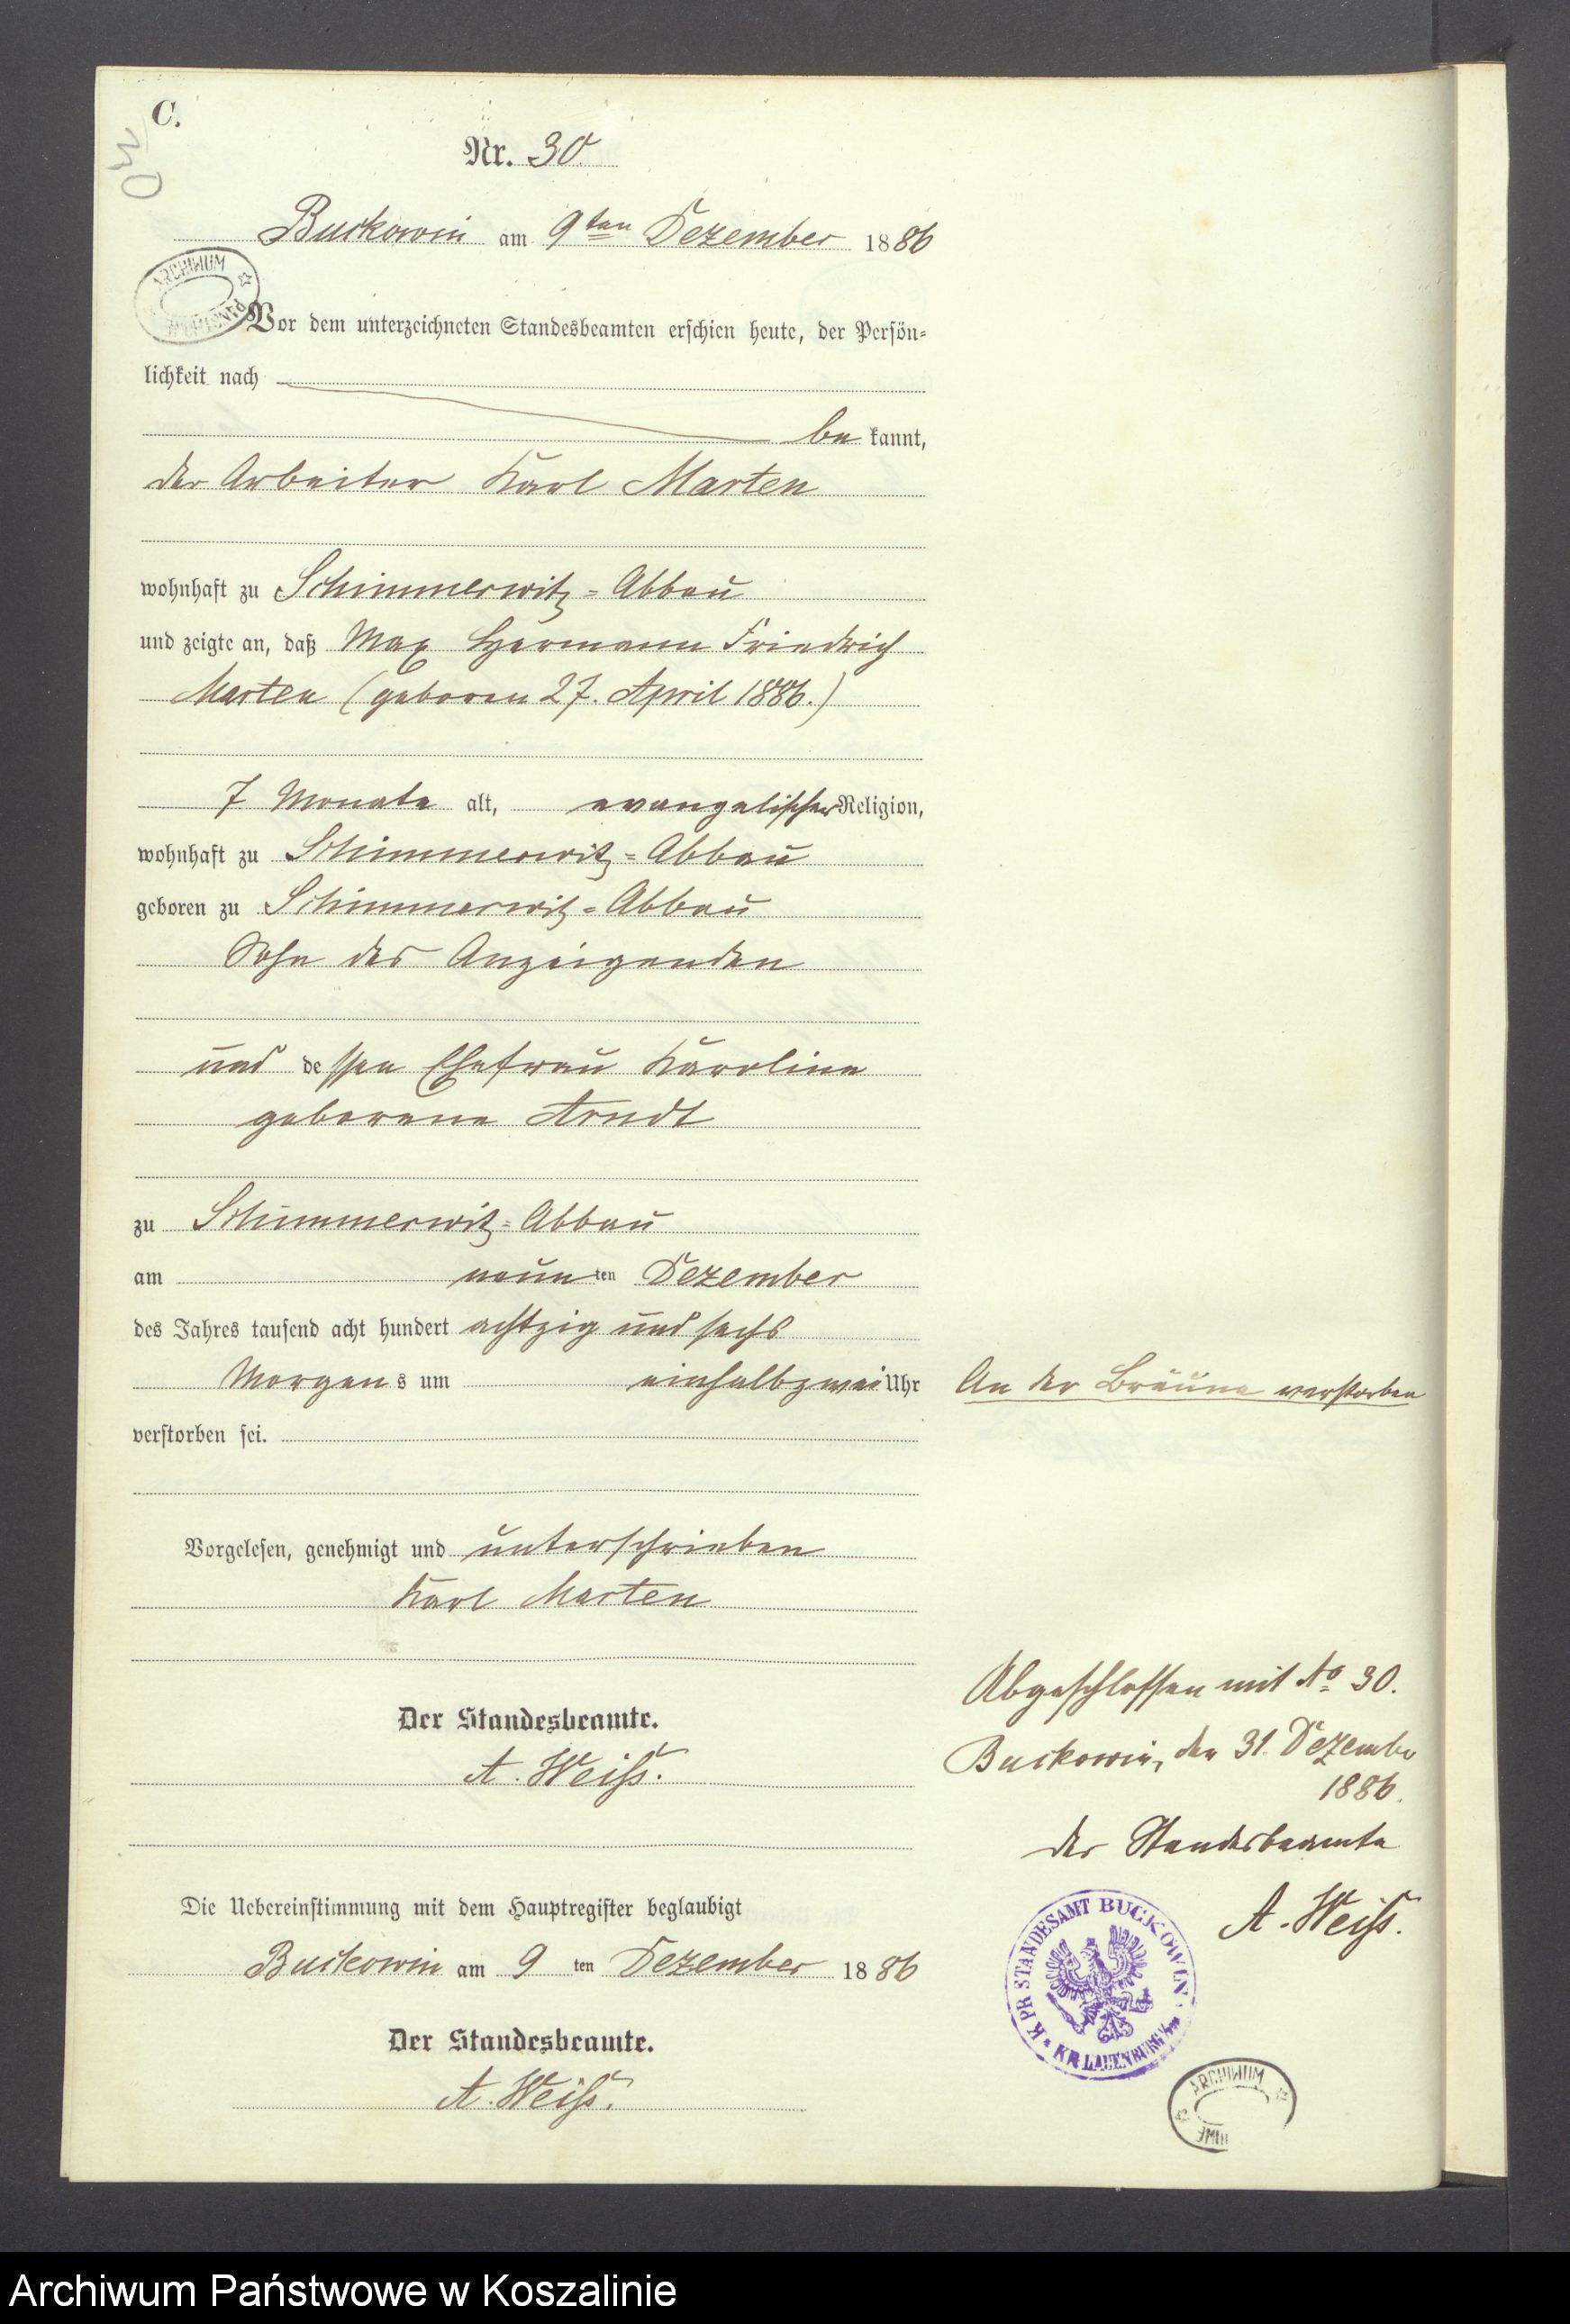 C.
30
Nr. 30
Buckowin am 9ten Dezember 1886
ARCHIWUM
Vor dem unterzeichneten Standesbeamten erschien heute, der Persön-
lichkeit nach
be kannt,
der Arbeiter Karl Marten
wohnhaft zu Schimmerwitz-Abbau
und zeigte an, daß Max Hermann Friedrich
Marten (geboren 27. April 1886.)
7 Monate alt, evangelischer Religion,
wohnhaft zu Schimmerwitz-Abbau
geboren zu Schimmerwitz-Abbau
Sohn des Anzeigenden
und dessen Ehefrau Karoline
geborene Arndt
zu Schimmerwitz-Abbau
am neunten Dezember
des Jahres tausend acht hundert achtzig und sechs
Morgens um einhalbzwei Uhr
An der Bräune verstorben
verstorben sei.
Vorgelesen, genehmigt und unterschrieben
Karl Marten
Der Standesbeamte.
A. Weiß.
Abgeschlossen mit No 30.
Buckowin, den 31. Dezember
1886.
der Standesbeamte
A. Weiß.
Die Uebereinstimmung mit dem Hauptregister beglaubigt
Buckowin am 9ten Dezember 1886
Der Standesbeamte.
A. Weiß.
K PR STANDESAMT BUCKOWIN
KR LAUENBURG
ARCHIWUM
Archiwum Państwowe w Koszalinie